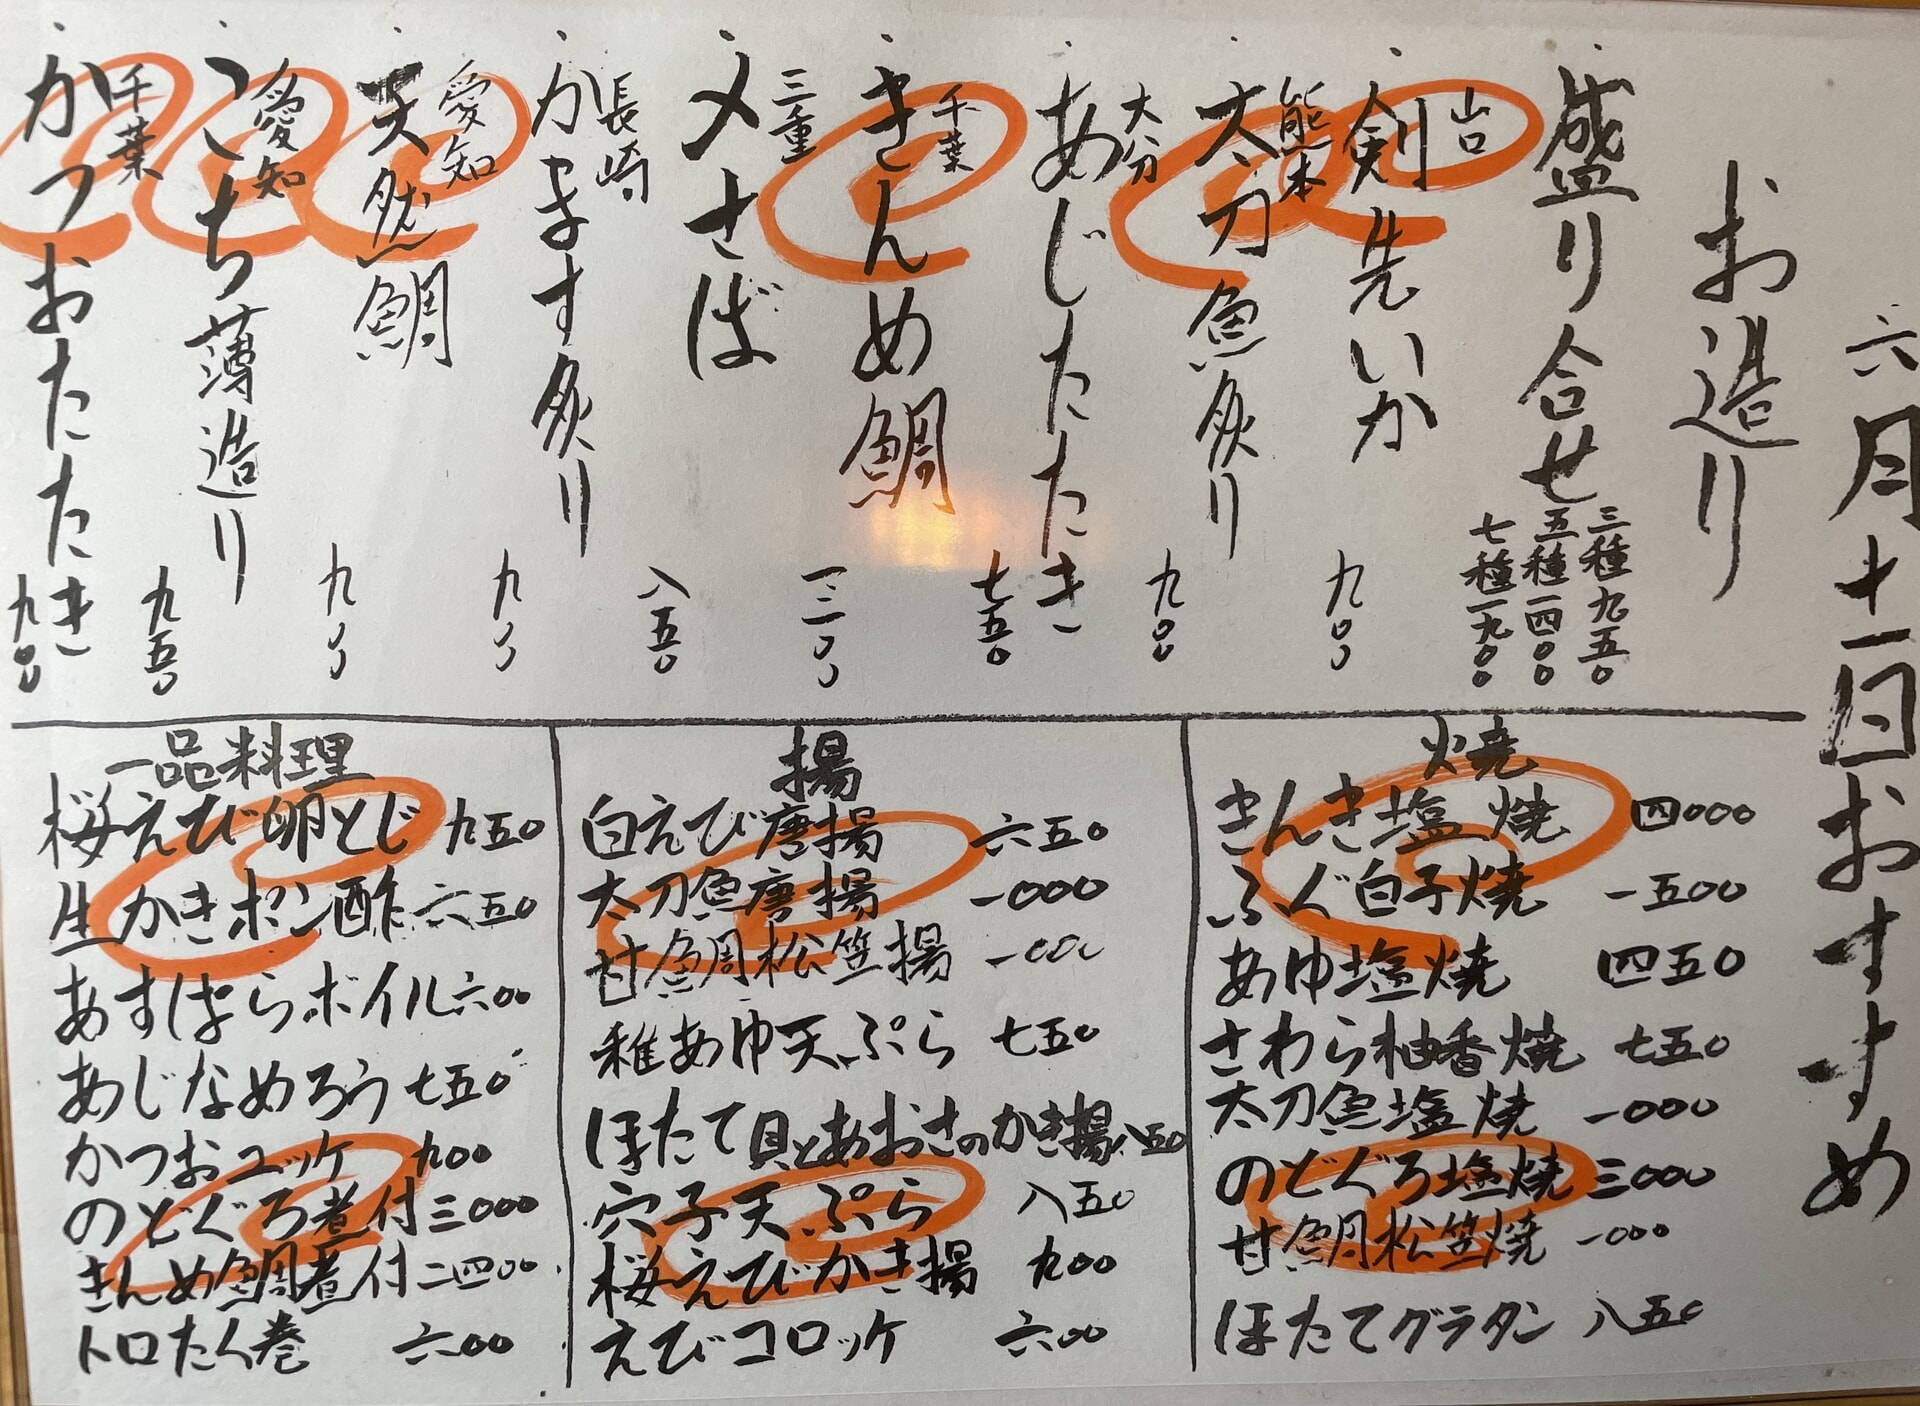 六月十一日おすすめ
お造り
盛り合せ
三種九五〇
五種一四〇〇
七種一九〇〇
山口
剣先いか 九〇〇
熊本
太刀魚炙り 九〇〇
大分
あじたたき 七五〇
千葉
きんめ鯛 一二〇〇
三重
〆さば 八五〇
長崎
かます炙り 九〇〇
愛知
天然鯛 九〇〇
愛知
こち薄造り 九五〇
千葉
かつおたたき 九〇〇
焼
きんき塩焼 四〇〇〇
ふぐ白子焼 一五〇〇
あゆ塩焼 四五〇
さわら柚香焼 七五〇
太刀魚塩焼 一〇〇〇
のどぐろ塩焼 三〇〇〇
甘鯛松笠焼 一〇〇〇
ほたてグラタン 八五〇
揚
白えび唐揚 六五〇
太刀魚唐揚 一〇〇〇
甘鯛松笠揚 一〇〇〇
稚あゆ天ぷら 七五〇
ほたて貝とあおさのかき揚 八五〇
穴子天ぷら 八五〇
桜えびかき揚 九〇〇
えびコロッケ 六〇〇
一品料理
桜えび卵とじ 九五〇
生かきポン酢 六五〇
あすぱらボイル 六〇〇
あじなめろう 七五〇
かつおユッケ 九〇〇
のどぐろ煮付 三〇〇〇
きんめ鯛煮付 二四〇〇
トロたく巻 六〇〇